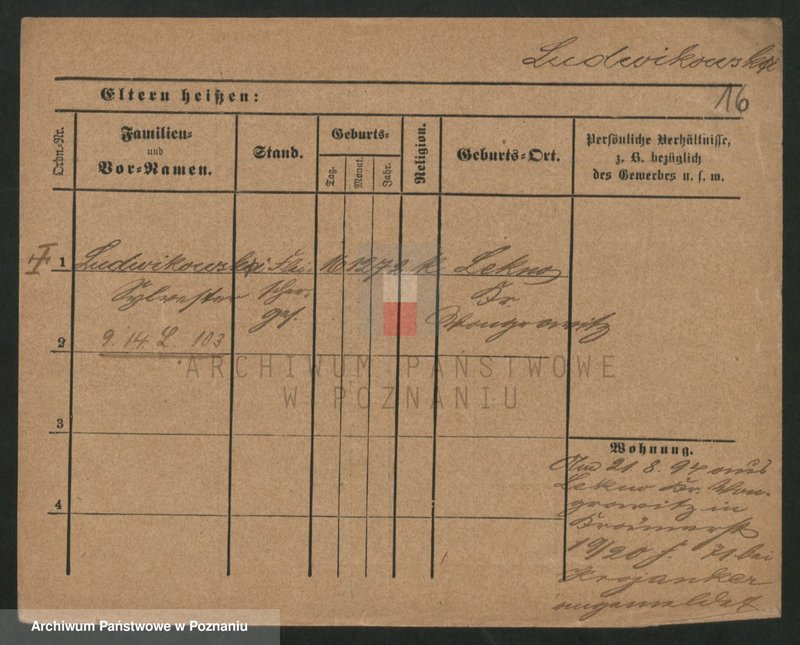 Ludwikowski
16
Eltern heißen:
Ordn.-Nr.
Familien-
und
Vor-Namen.
Stand.
Geburts-
Tag.
Monat.
Jahr.
Religion.
Geburts-Ort.
Persönliche Verhältnisse,
z. B. bezüglich
des Gewerbes u. s. w.
1 Ludwikowski 16 12 72 k Lekno
Sylvester Kr
Wongrowitz
9. 14. L 103
2
ARCHIWUM PAŃSTWOWE
W POZNANIU
3
4
Wohnung.
Am 21. 8. 94 aus
Lekno Kr. Won-
growitz in
19/20 f. 71 bei
Krojanker
angemeldet
Archiwum Państwowe w Poznaniu